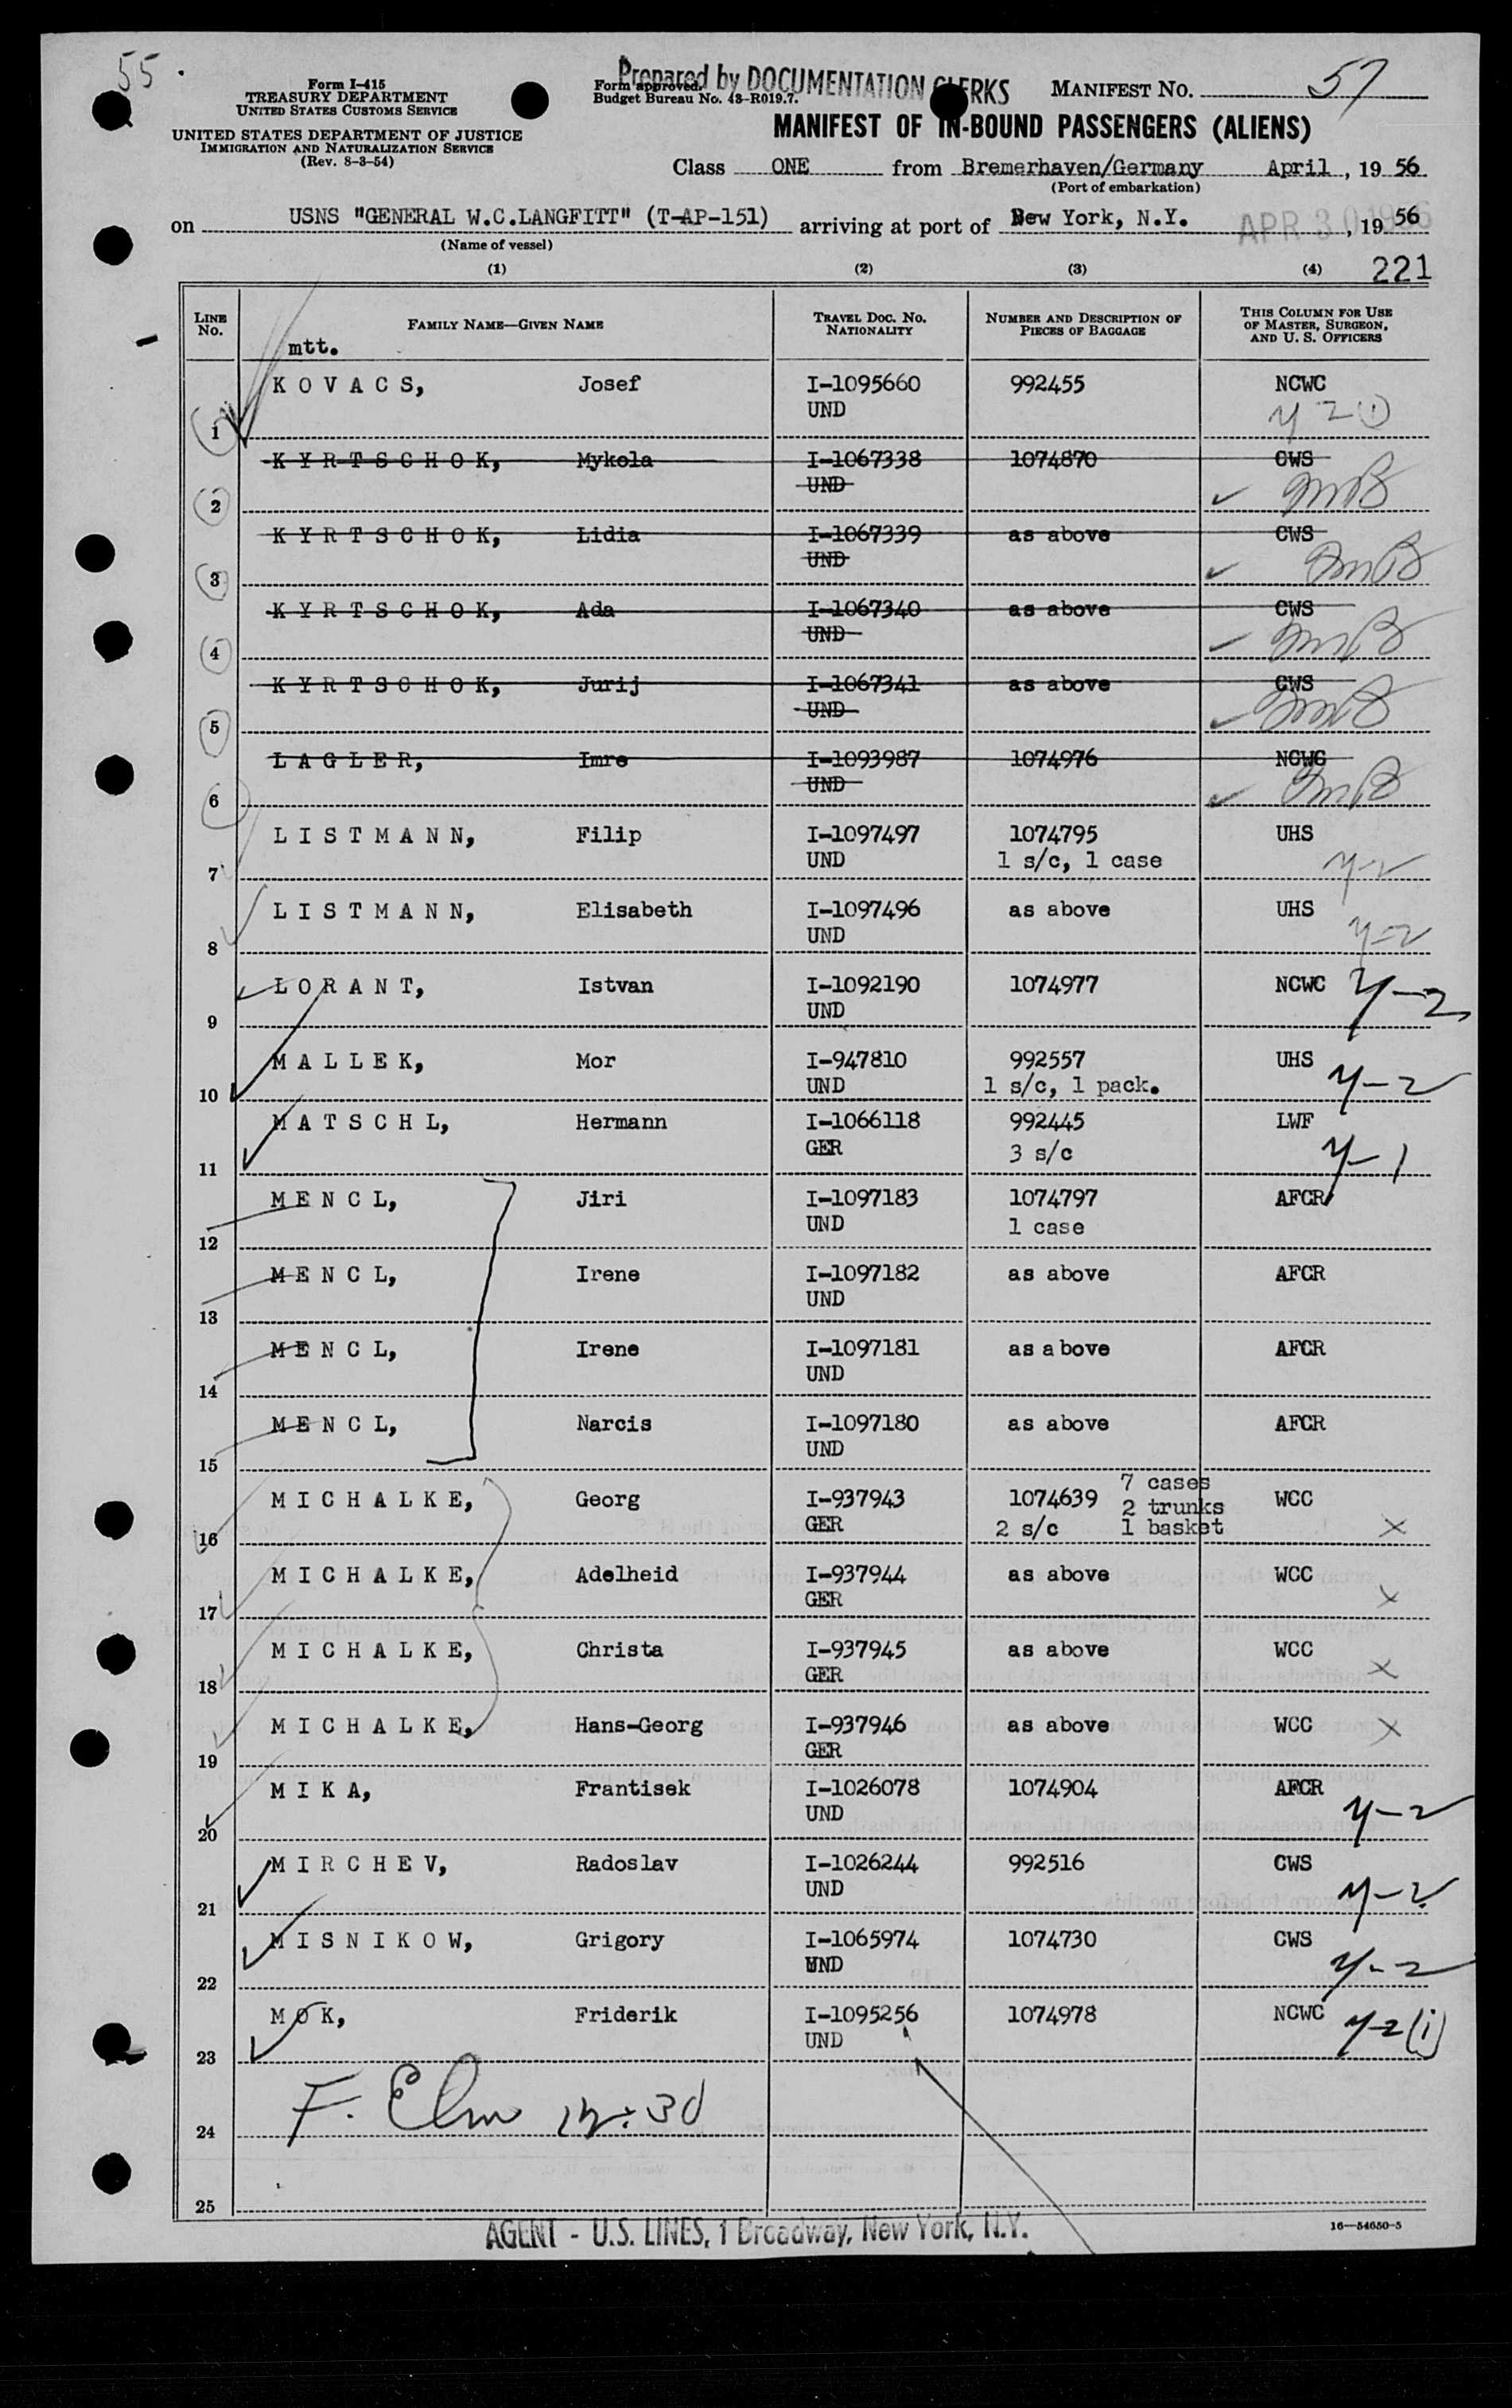 55.
Form I-415
TREASURY DEPARTMENT
UNITED STATES CUSTOMS SERVICE
UNITED STATES DEPARTMENT OF JUSTICE
IMMIGRATION AND NATURALIZATION SERVICE
(Rev. 8-3-54)
Prepared by DOCUMENTATION CLERKS
Form approved.
Budget Bureau No. 43-R019.7.
MANIFEST NO. 57
MANIFEST OF IN-BOUND PASSENGERS (ALIENS)
Class ONE from Bremerhaven/Germany April, 19 56
(Port of embarkation)
on USNS "GENERAL W.C.LANGFITT" (T-AP-151) arriving at port of New York, N.Y. APR 30 1956, 19 56
(Name of vessel)
(1) (2) (3) (4) 221
LINE NO. FAMILY NAME—GIVEN NAME TRAVEL DOC. NO. NATIONALITY NUMBER AND DESCRIPTION OF PIECES OF BAGGAGE THIS COLUMN FOR USE OF MASTER, SURGEON, AND U. S. OFFICERS
mtt.
1 K O V A C S, Josef I-1095660 992455 NCWC
UND
2 K Y R T S C H O K, Mykola I-1067338 1074870 CWS
UND
3 K Y R T S C H O K, Lidia I-1067339 as above CWS
UND
4 K Y R T S C H O K, Ada I-1067340 as above CWS
UND
5 K Y R T S C H O K, Jurij I-1067341 as above CWS
UND
6 L A G L E R, Imre I-1093987 1074976 NCWC
UND
7 L I S T M A N N, Filip I-1097497 1074795 UHS
UND 1 s/c, 1 case
8 L I S T M A N N, Elisabeth I-1097496 as above UHS
UND
9 L O R A N T, Istvan I-1092190 1074977 NCWC
UND
10 M A L L E K, Mor I-947810 992557 UHS
UND 1 s/c, 1 pack.
11 M A T S C H L, Hermann I-1066118 992445 LWF
GER 3 s/c
12 M E N C L, Jiri I-1097183 1074797 AFCR
UND 1 case
13 M E N C L, Irene I-1097182 as above AFCR
UND
14 M E N C L, Irene I-1097181 as above AFCR
UND
15 M E N C L, Narcis I-1097180 as above AFCR
UND
7 cases
16 M I C H A L K E, Georg I-937943 1074639 2 trunks WCC
GER 2 s/c 1 basket X
17 M I C H A L K E, Adelheid I-937944 as above WCC
GER X
18 M I C H A L K E, Christa I-937945 as above WCC
GER X
19 M I C H A L K E, Hans-Georg I-937946 as above WCC X
GER
20 M I K A, Frantisek I-1026078 1074904 AFCR
UND
21 M I R C H E V, Radoslav I-1026244 992516 CWS
UND
22 M I S N I K O W, Grigory I-1065974 1074730 CWS
UND
23 M O K, Friderik I-1095256 1074978 NCWC
UND
24 F. Elm
25
AGENT - U.S. LINES, 1 Broadway, New York, N.Y.
16—54650-5